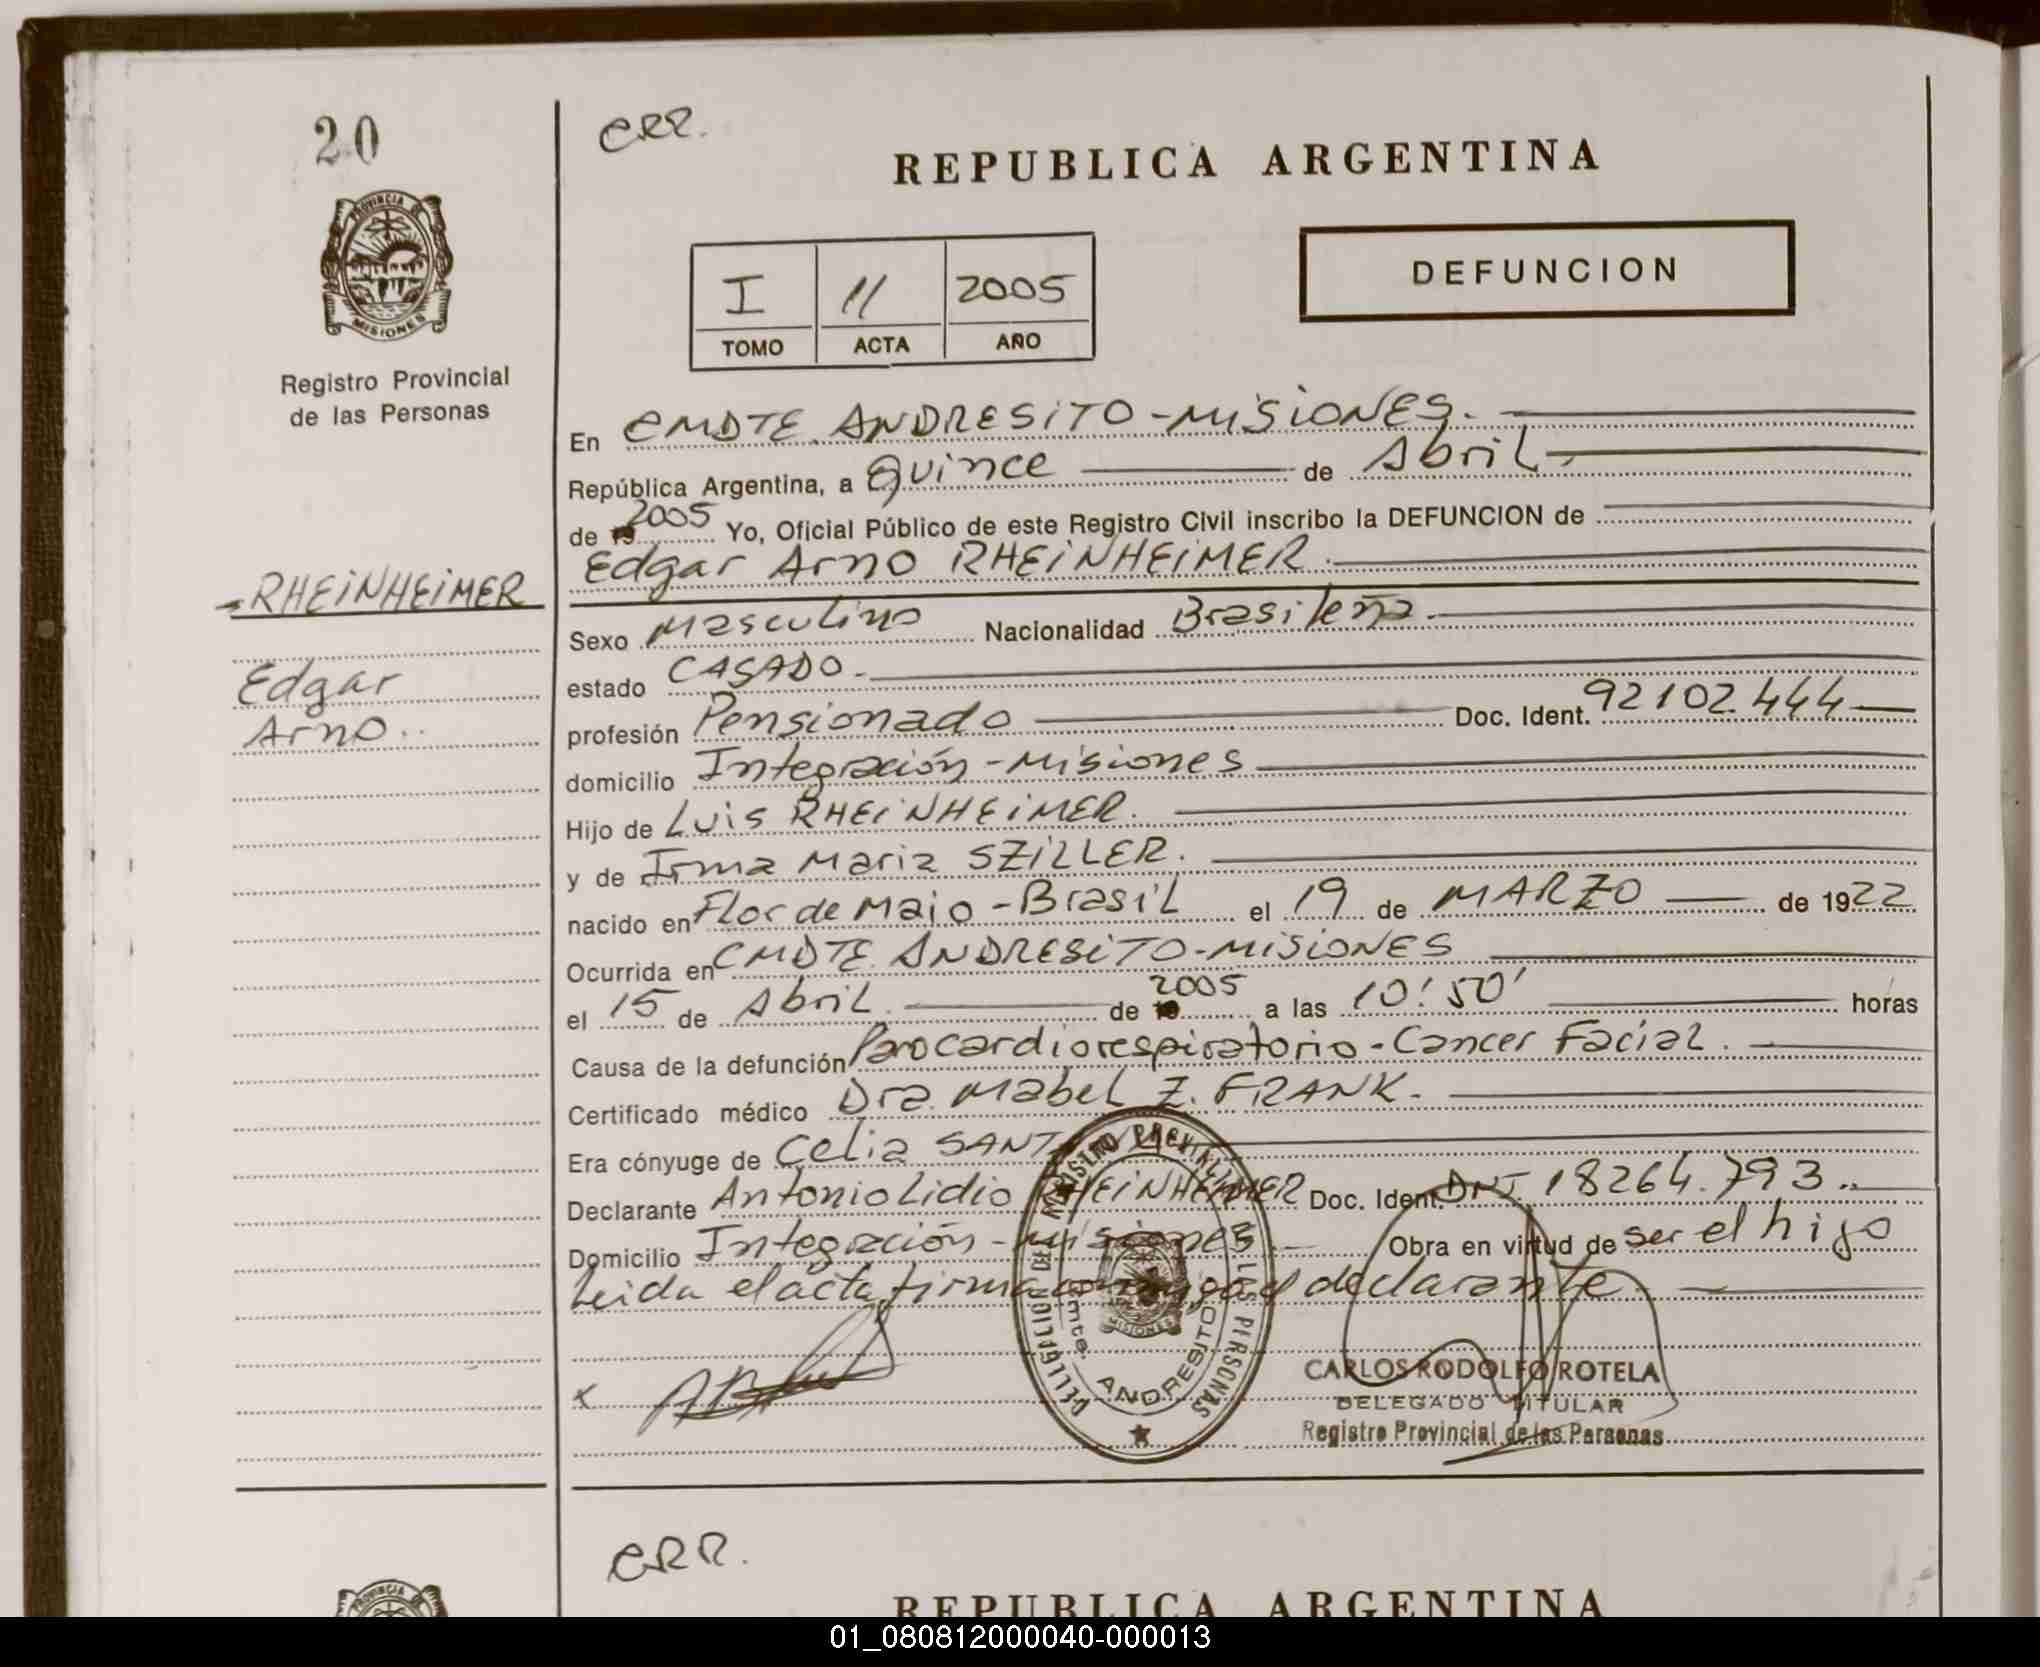 20
CRR.
REPUBLICA ARGENTINA
PROVINCIA DE
MISIONES
DEFUNCION
I 11 2005
TOMO ACTA AÑO
Registro Provincial
de las Personas
En CMDTE. ANDRESITO - MISIONES.
República Argentina, a Quince de Abril
de 19 2005 Yo, Oficial Público de este Registro Civil inscribo la DEFUNCION de
Edgar Arno RHEINHEIMER.
RHEINHEIMER
Edgar
Arno
Sexo Masculino Nacionalidad Brasileña.
estado CASADO.
profesión Pensionado Doc. Ident. 92102.444
domicilio Integración - Misiones
Hijo de Luis RHEINHEIMER.
y de Irma Maria SZILLER.
nacido en Flor de Maio - Brasil el 19 de MARZO de 1922
Ocurrida en CMDTE. ANDRESITO - MISIONES
el 15 de Abril. de 2005 a las 10:50' horas
Causa de la defunción Parocardiorespiratorio - Cancer Facial.
Certificado médico Dra. Mabel Z. FRANK.
Era cónyuge de Celia
Declarante Antonio Lidio RHEINHEIMER Doc. Ident. DNI 18264.793
Domicilio Integración - Misiones Obra en virtud de ser el hijo
Leida el acta firma conmigo el declarante.
DELEGACION DEL REGISTRO PROVINCIAL DE LAS PERSONAS
Cmte. ANDRESITO
MISIONES
x
CARLOS RODOLFO ROTELA
DELEGADO TITULAR
Registro Provincial de las Personas
CRR.
REPUBLICA ARGENTINA
PROVINCIA
01_080812000040-000013